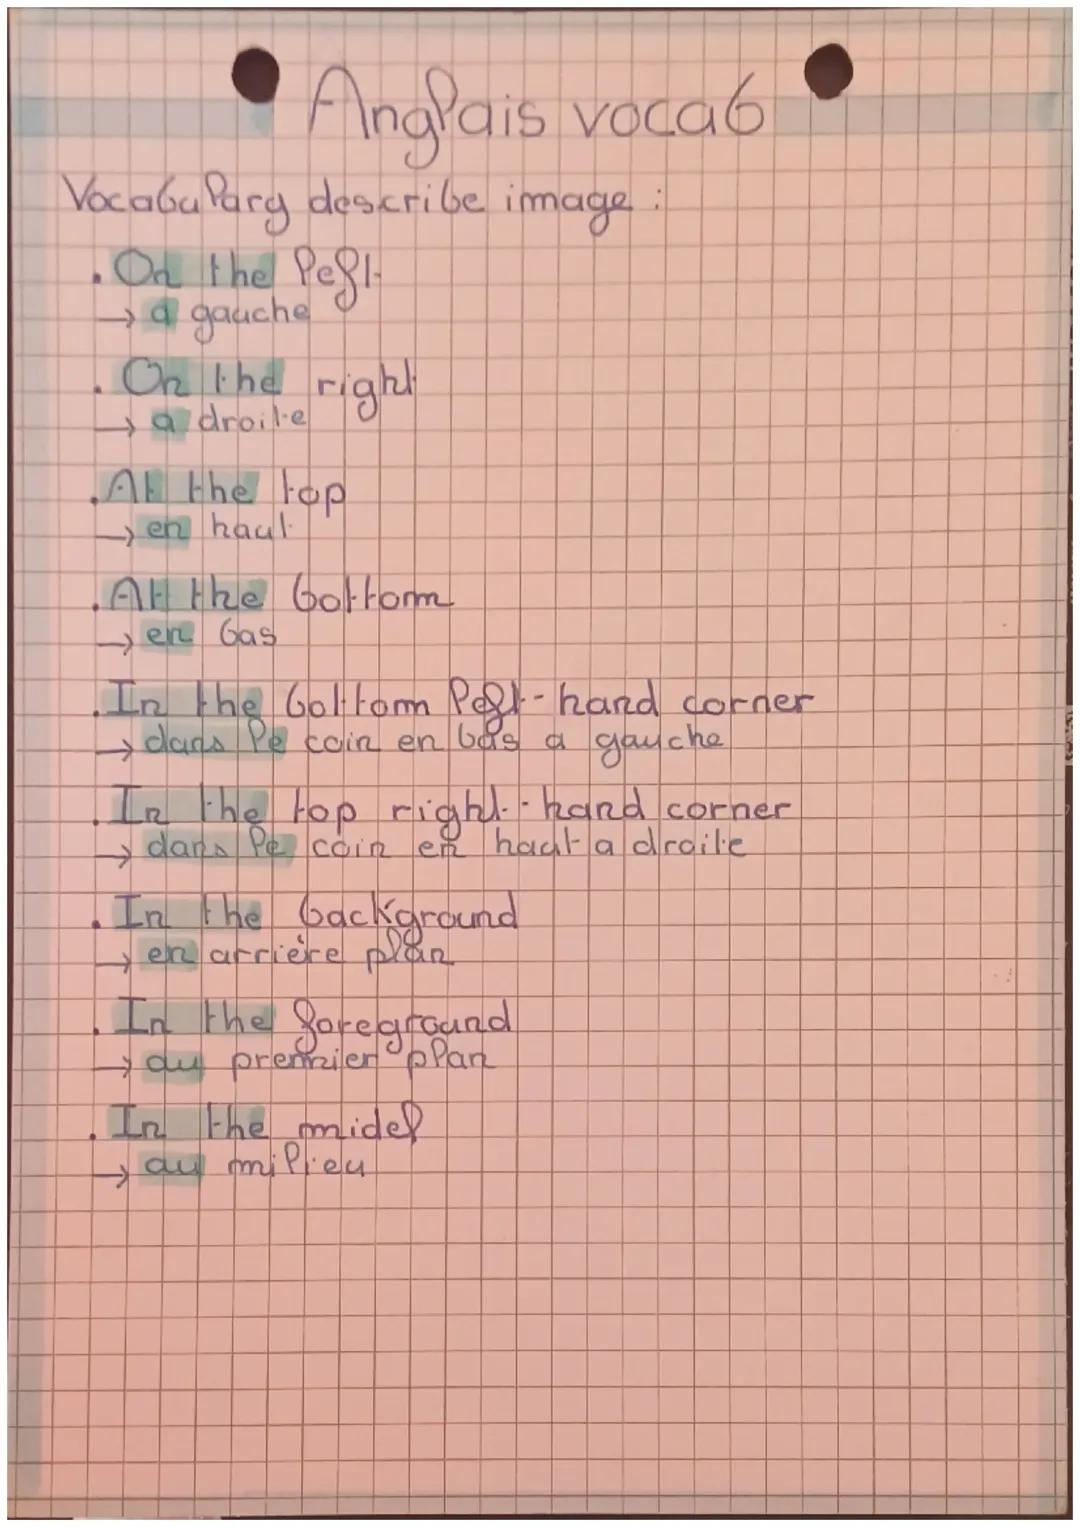 Anglais vocab
Vocabulary describe image :
. On the left
→ a gauche
. On the right
→ a droite
. At the top
→ en haut
. At the bottom
→ en bas
. In the bottom left-hand corner
→ dans le coin en bas a gauche
. In the top right-hand corner
→ dans le coin en haut a droite
. In the background
→ en arrière plan
. In the foreground
→ au premier plan
. In the midel
→ au milieu